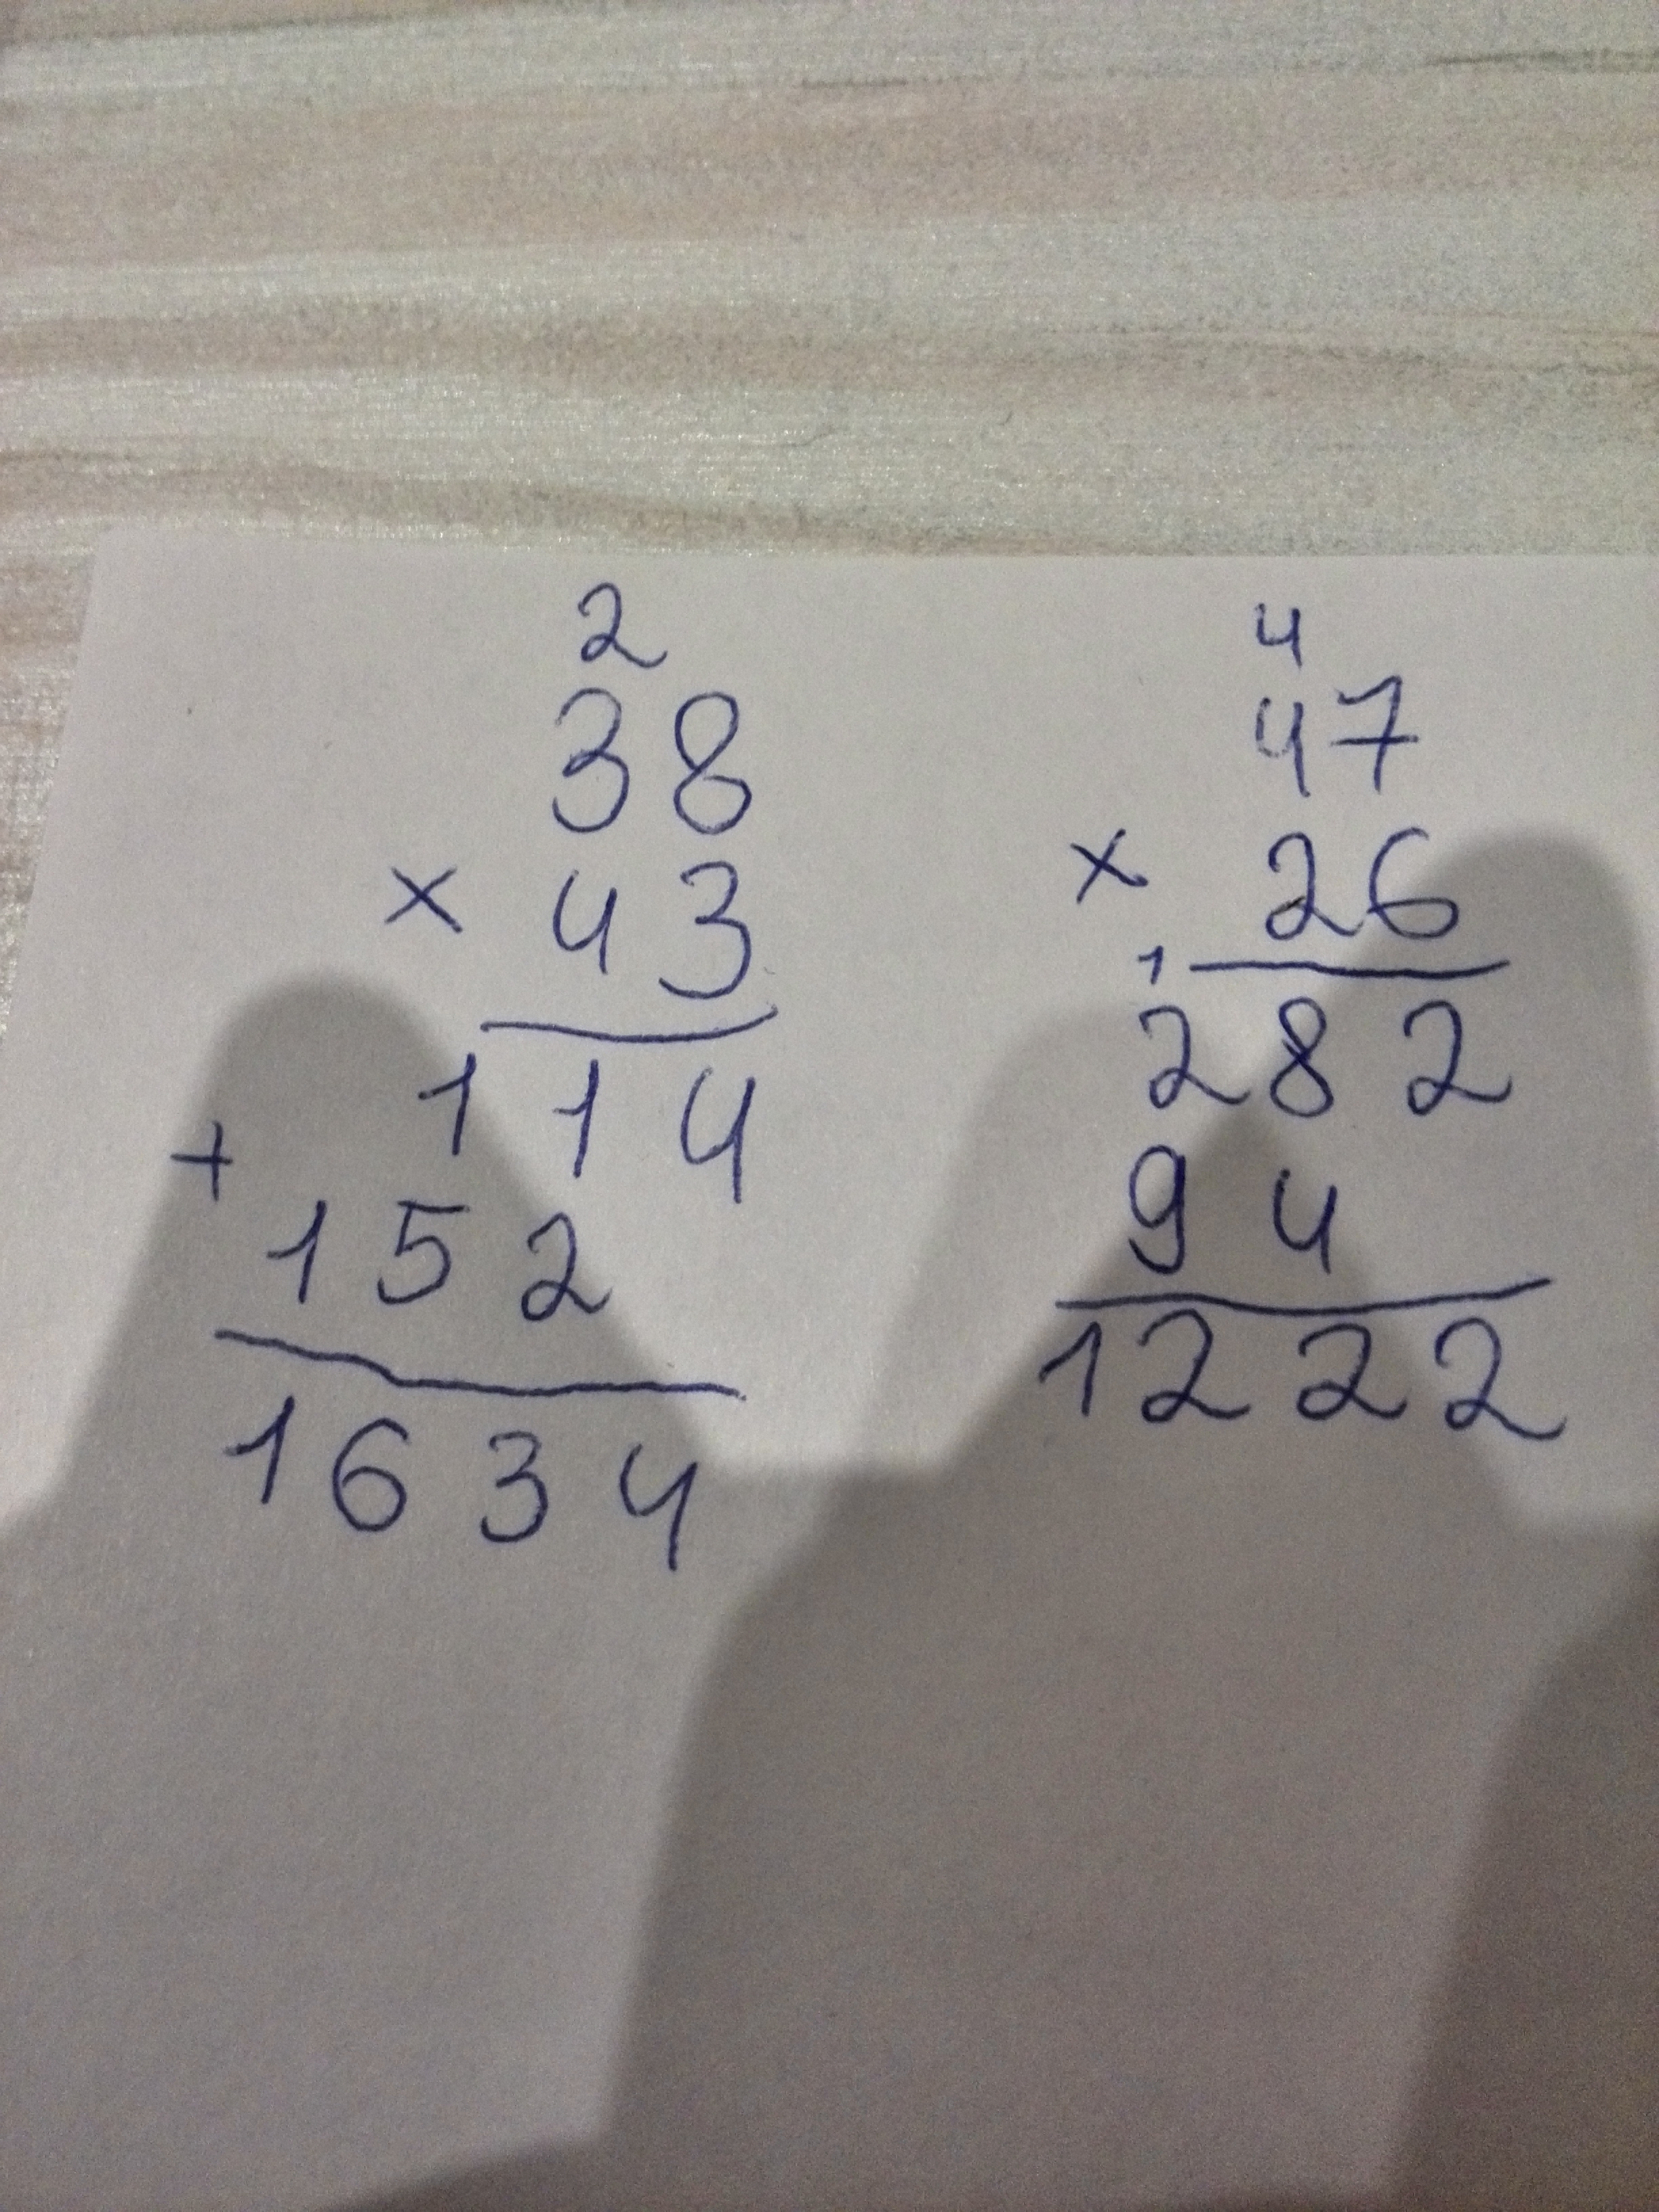 2
38
× 43
114
+
152
1634
4
47
× 26
1
282
94
1222